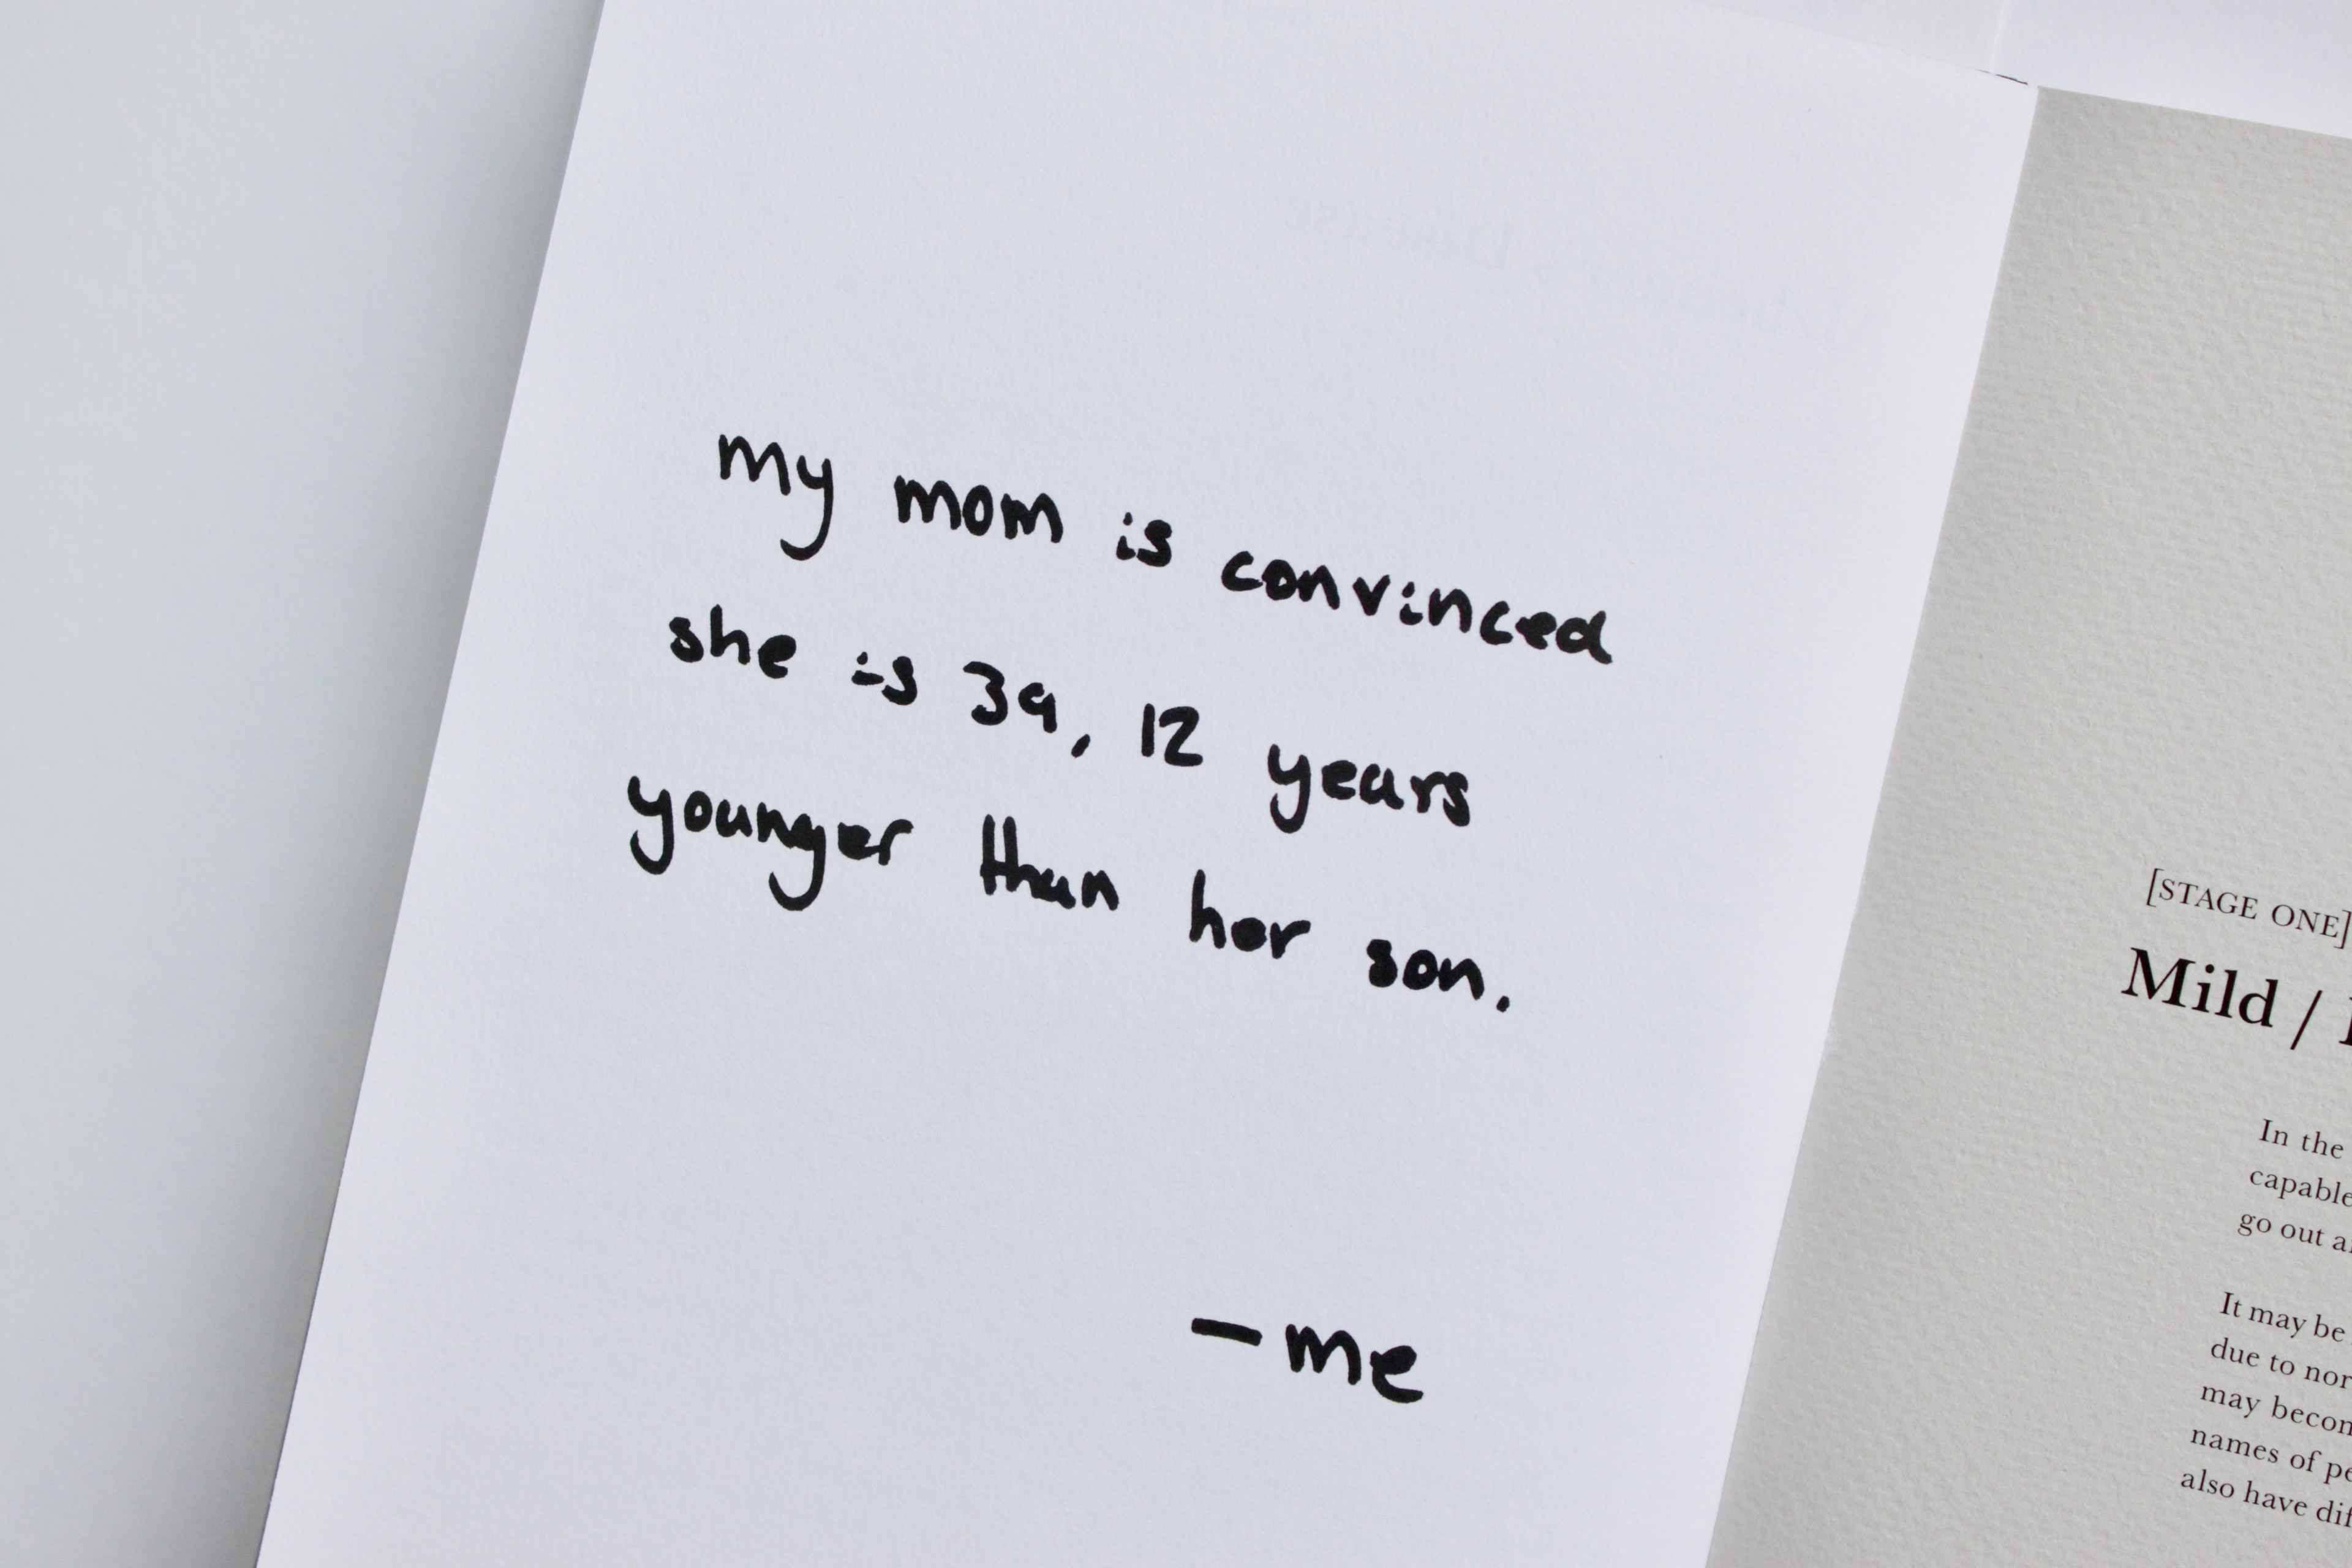 my mom is convinced
she is 39, 12 years
younger than her son.
—me
[STAGE ONE]
Mild /
In the
capable
go out
It may be
due to
may
names of
also have